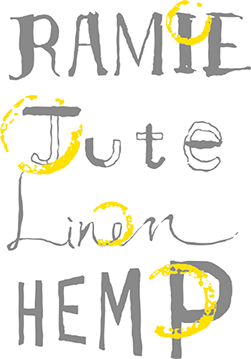 RAMIE
Jute
Linen
HEMP